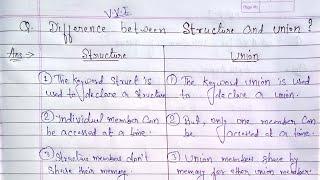 V.V.I.
Q. Difference between Structure and union ?
Ans → Structure Union
① The keyword Struct is used to declare a structure
① The keyword union is used to declare a union.
② Individual member can be accessed at a time.
② But, only one member can be accessed at a time.
③ Structure members don't share their memory.
③ Union member share by memory for other union member